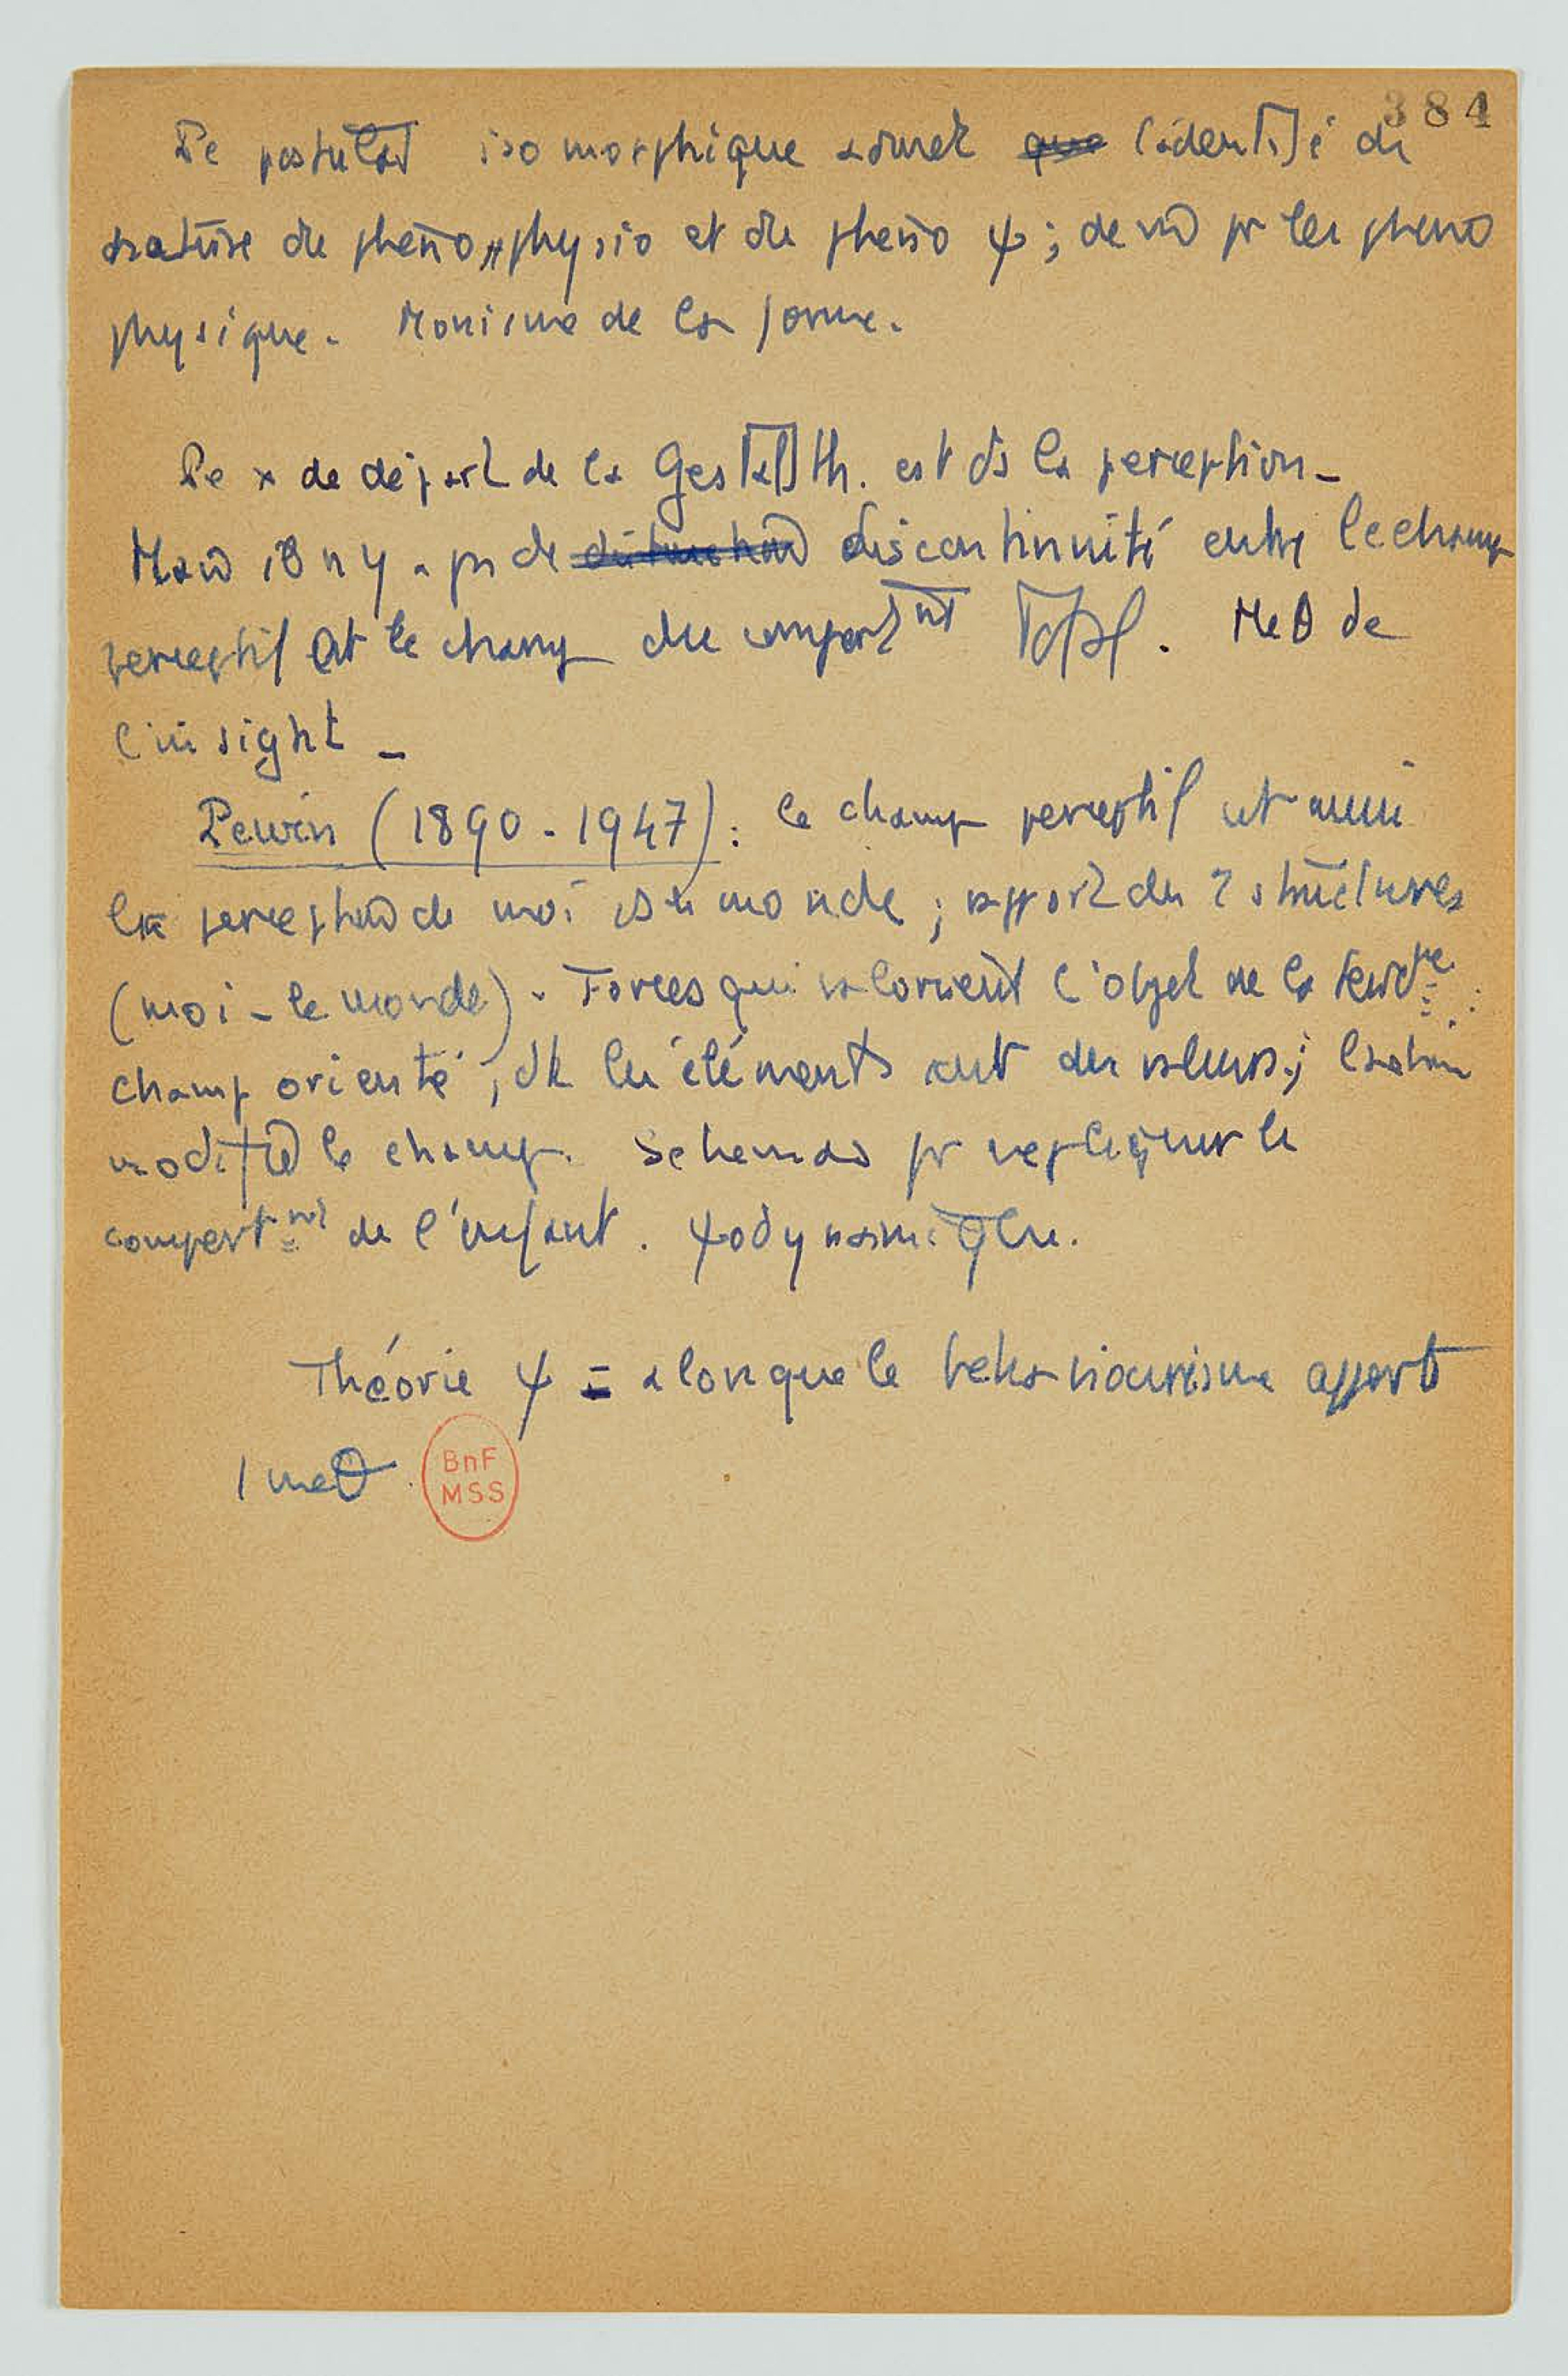 384
Le postulat isomorphique admet ~~que~~ l'identité de
nature du phéno physio et du phéno ψ ; de m̂ pr les phéno
physique. Monisme de la forme.
Le × de départ de la Gestaltth. est ds la perception_
Mais il n'y a pas de ~~distinction~~ discontinuité entre le champ
perceptif et le champ du comportnt total. Meθ de
l'insight _
Lewin (1890-1947) : le champ perceptif est aussi
la perception du moi ds le monde ; apport des 2 structures
(moi - le monde). Forces qui valorisent l'objet de la tendce :
champ orienté, dt les éléments ont des valeurs ; l'action
modifie le champ. Schemas pr expliquer le
comportmt de l'enfant. ψodynamique.
Théorie ψ = alors que le behaviourisme apport
1 meθ.
BnF
MSS